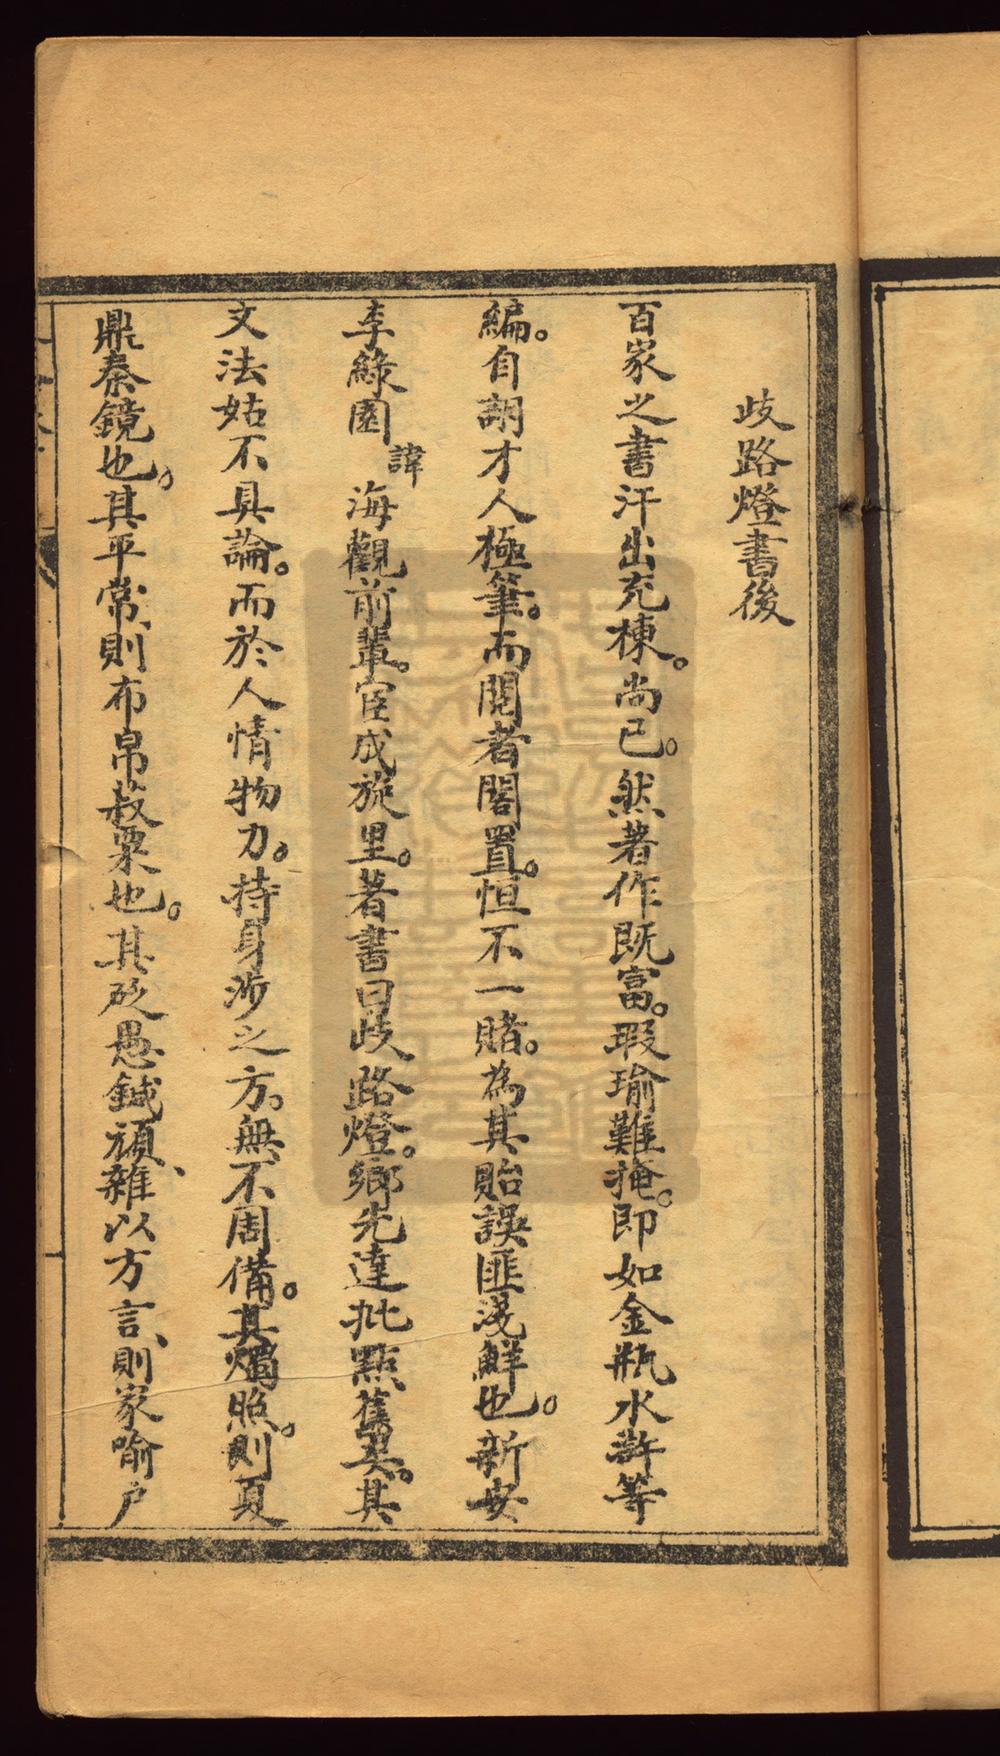 歧路燈書後
百家之書汗出充棟。尚已。然著作既富。瑕瑜難掩。即如金瓶水滸等
編。自詡才人極筆。而閱者閣置。恒不一賭。為其貽誤匪淺鮮也。新安
李綠園諱海觀前輩。宦成旋里。著書曰歧路燈。鄉先達批點舊矣。其
文法姑不具論。而於人情物力。持身涉之方。無不周備。其燭照。則夏
鼎秦鏡也。其平常、則布帛菽粟也。其砭愚鍼頑、雜以方言、則家喻户